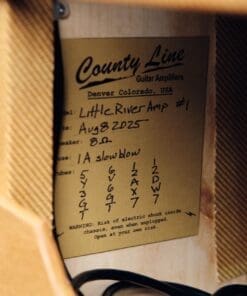 County Line
Guitar Amplifiers
Denver Colorado, USA
el: Little River Amp #1
te: Aug 8 2025
eaker: 8Ω
use: 1A slow blow
ubes: 5 6 1 1
Y V 2 2
3 6 A D
G G X W
T T 7 7
WARNING: Risk of electric shock inside
chassis, even when unplugged.
Open at your own risk.